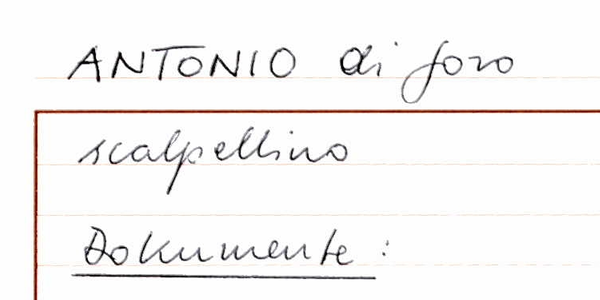 ANTONIO di foro
scalpellino
Dokumente: